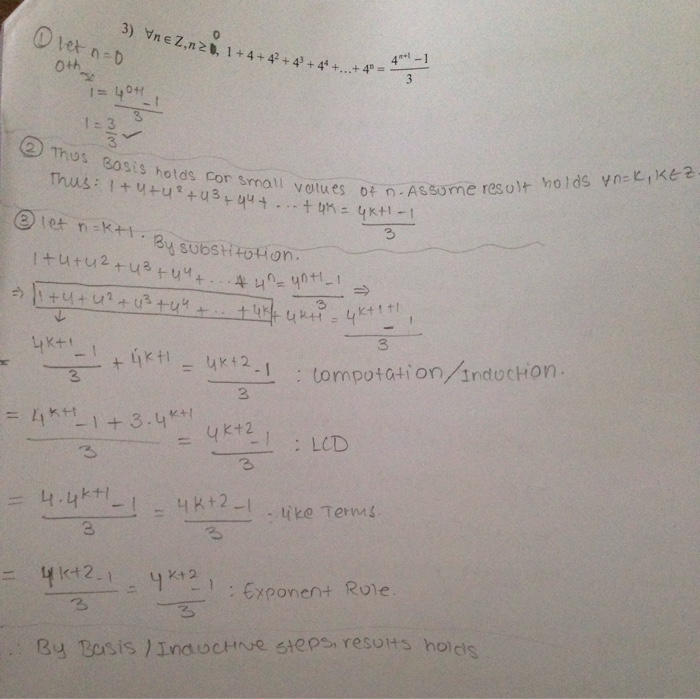 3) ∀n∈Z, n≥0, 1+4+4²+4³+4⁴+...+4ⁿ = (4ⁿ⁺¹-1)/3
① let n=0
0th
1 = (4⁰⁺¹-1)/3
1 = 3/3 ✓
② Thus Basis holds for small values of n. Assume result holds ∀n=k, k∈Z.
Thus: 1+4+4²+4³+4⁴+...+4ᵏ = (4ᵏ⁺¹-1)/3
③ let n=k+1. By substitution.
1+4+4²+4³+4⁴+...+4ⁿ = (4ⁿ⁺¹-1)/3 ⇒
⇒ 1+4+4²+4³+4⁴+...+4ᵏ+4ᵏ⁺¹ = (4ᵏ⁺¹⁺¹-1)/3
= (4ᵏ⁺¹-1)/3 + 4ᵏ⁺¹ = (4ᵏ⁺²-1)/3 : Computation/Induction.
= (4ᵏ⁺¹-1+3·4ᵏ⁺¹)/3 = (4ᵏ⁺²-1)/3 : LCD
= (4·4ᵏ⁺¹-1)/3 = (4ᵏ⁺²-1)/3 : Like Terms.
= (4ᵏ⁺²-1)/3 = (4ᵏ⁺²-1)/3 : Exponent Rule.
∴ By Basis / Inductive steps, results holds